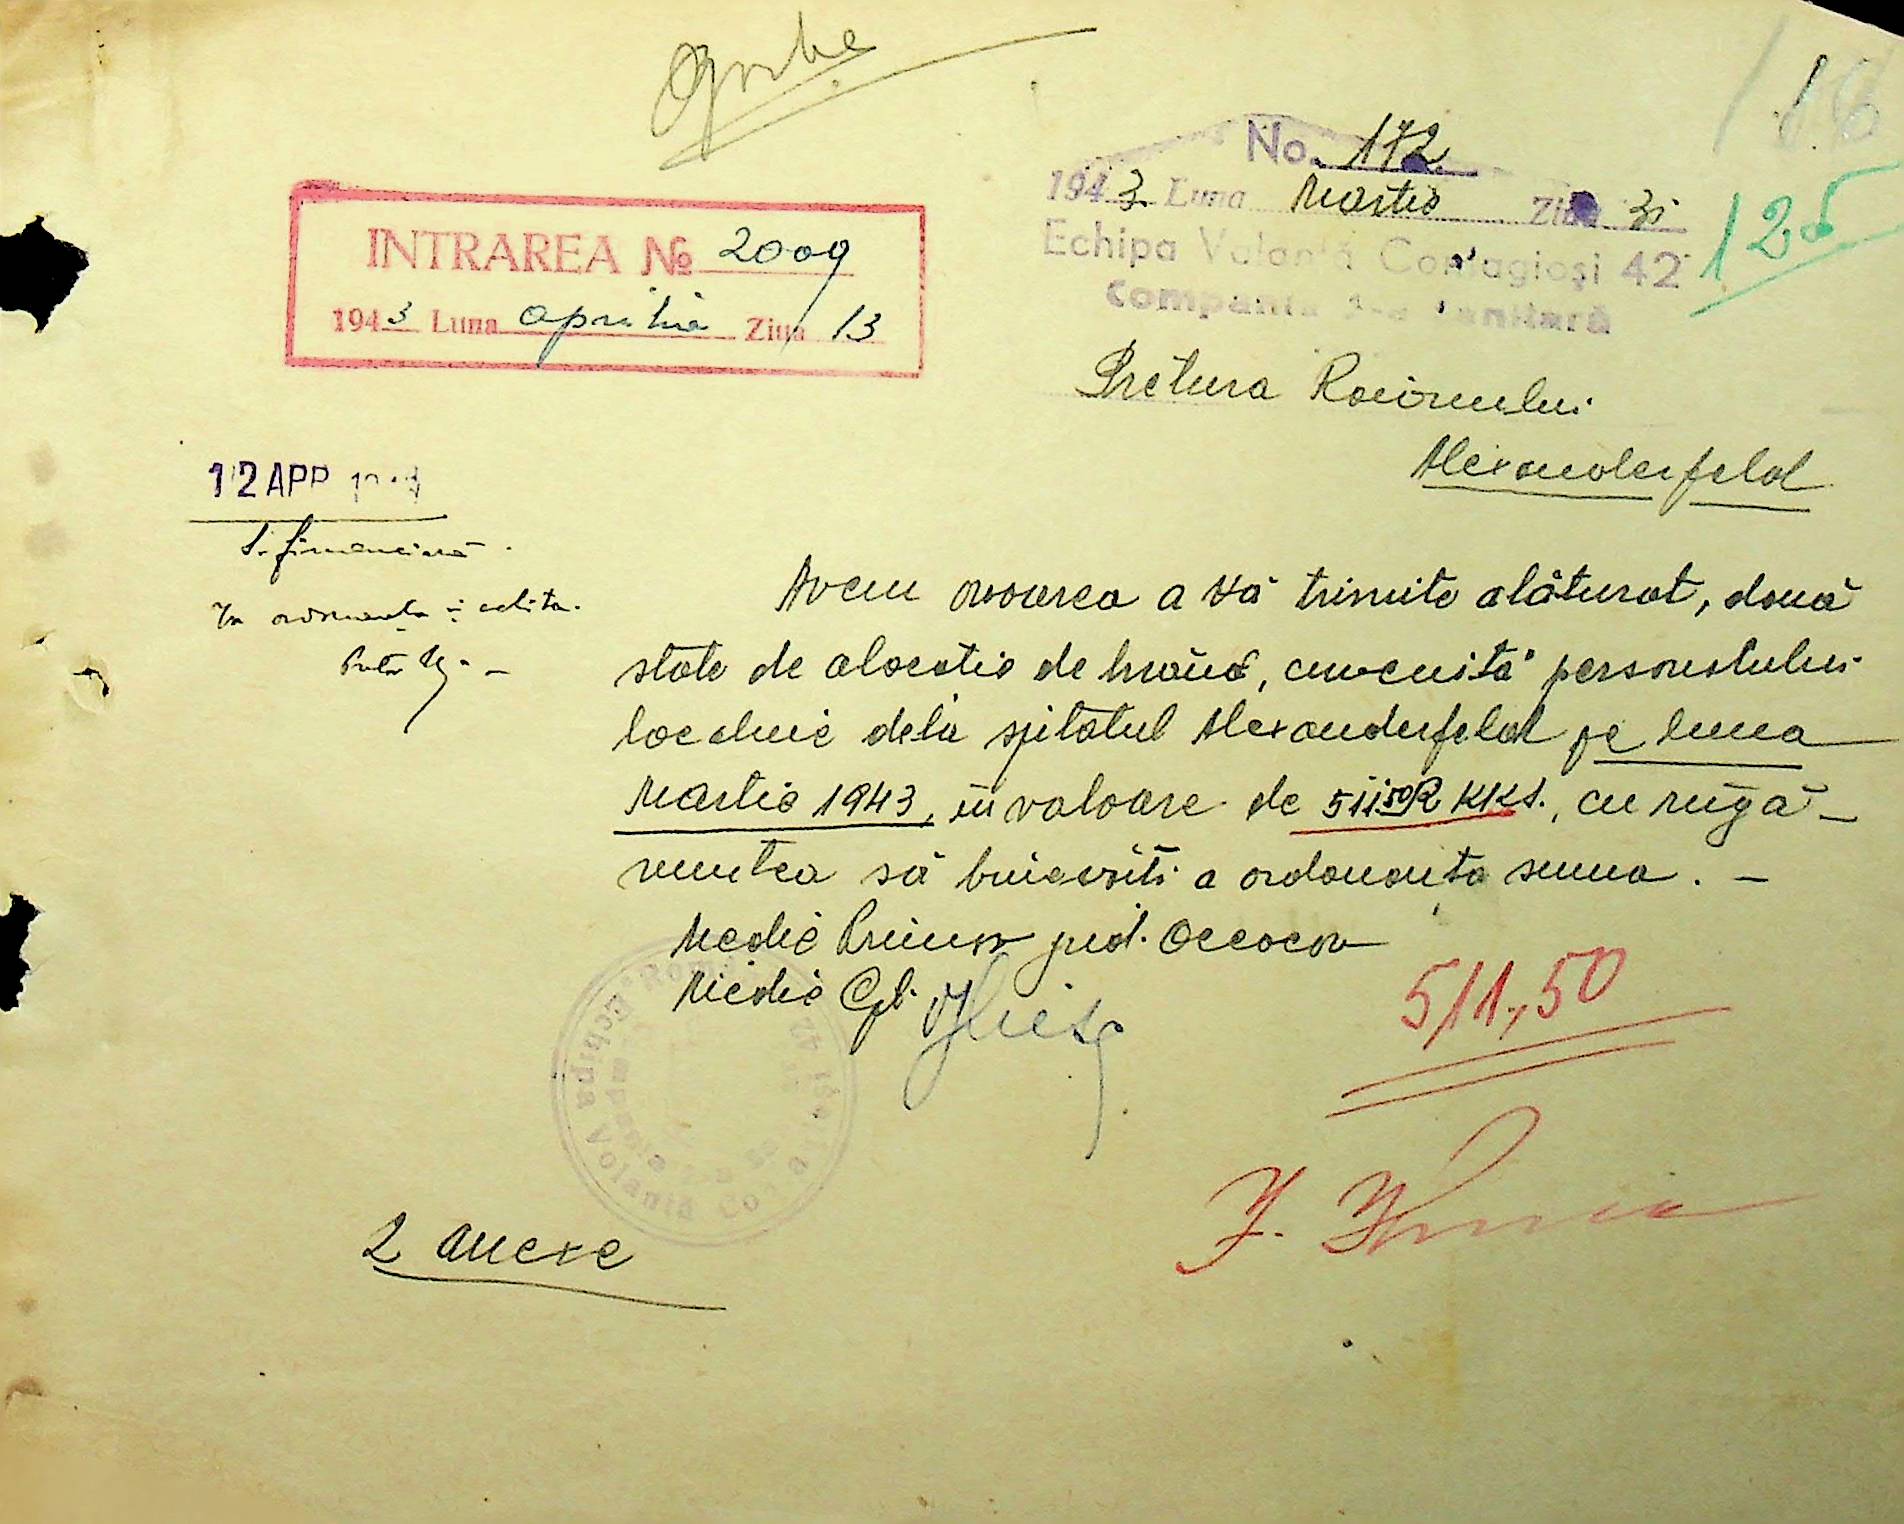 No. 172
1943 Luna Martie Ziua 31
Echipa Volantă Contagioși 42
Compania 1-a Sanitară
125
INTRAREA № 2009
1943 Luna aprilie Ziua 13
Pretura Raionului
Alexanderfeld
12 APR
S. financiară
Avem onoarea a Vă trimite alăturat, două
state de alocație de hrană, cuvenită personalului
localnic dela spitalul Alexanderfeld pe luna
Martie 1943, în valoare de 511.50 R KKS., cu rugă-
mintea să binevoiți a ordonanța suma. -
Medic Primar jud. Oceacov
Medic Cpt.
511,50
Echipa Volantă
2 anexe